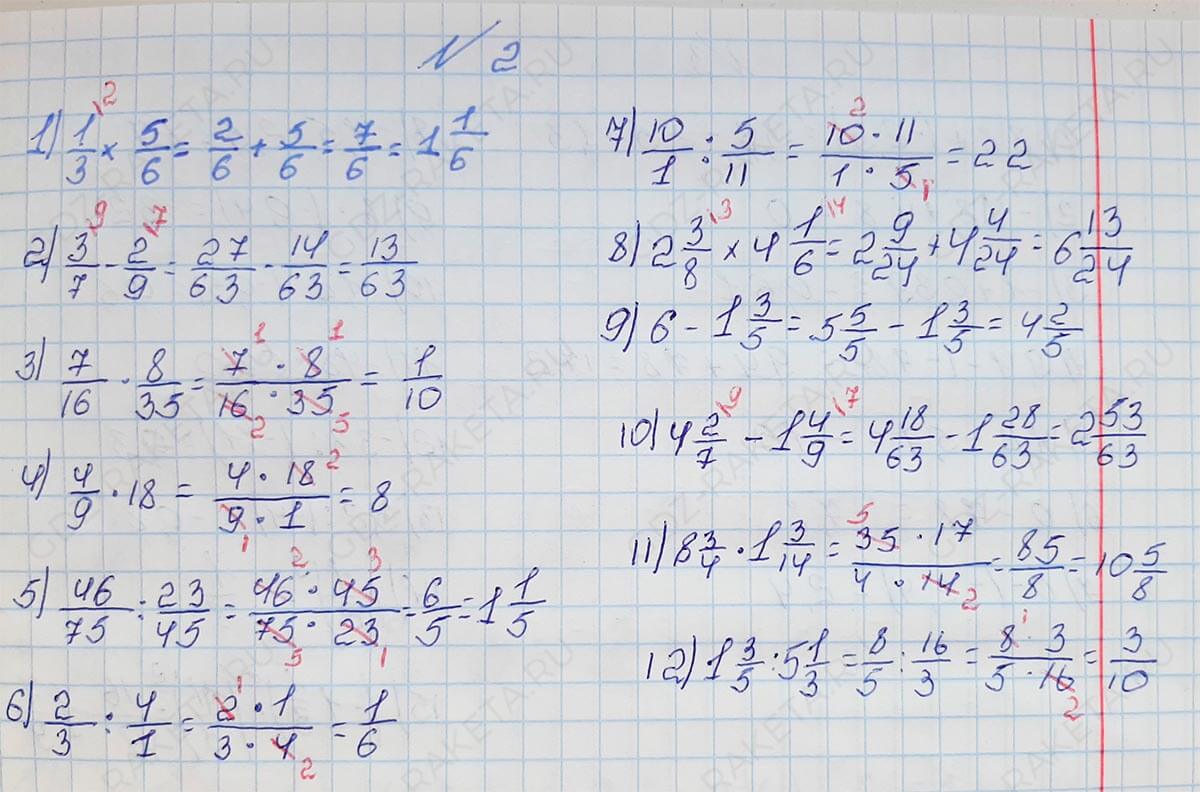 № 2
1) 1/3 × 5/6 = 2/6 + 5/6 = 7/6 = 1 1/6
2) 3/7 - 2/9 = 27/63 - 14/63 = 13/63
3) 7/16 · 8/35 = 7 · 8 / 16 · 35 = 1/10
4) 4/9 · 18 = 4 · 18 / 9 · 1 = 8
5) 46/75 : 23/45 = 46 · 45 / 75 · 23 = 6/5 = 1 1/5
6) 2/3 : 4/1 = 2 · 1 / 3 · 4 = 1/6
7) 10/1 : 5/11 = 10 · 11 / 1 · 5 = 22
8) 2 3/8 × 4 1/6 = 2 9/24 + 4 4/24 = 6 13/24
9) 6 - 1 3/5 = 5 5/5 - 1 3/5 = 4 2/5
10) 4 2/7 - 1 4/9 = 4 18/63 - 1 28/63 = 2 53/63
11) 8 3/4 · 1 3/14 = 35 · 17 / 4 · 14 = 85/8 = 10 5/8
12) 1 3/5 : 5 1/3 = 8/5 : 16/3 = 8 · 3 / 5 · 16 = 3/10